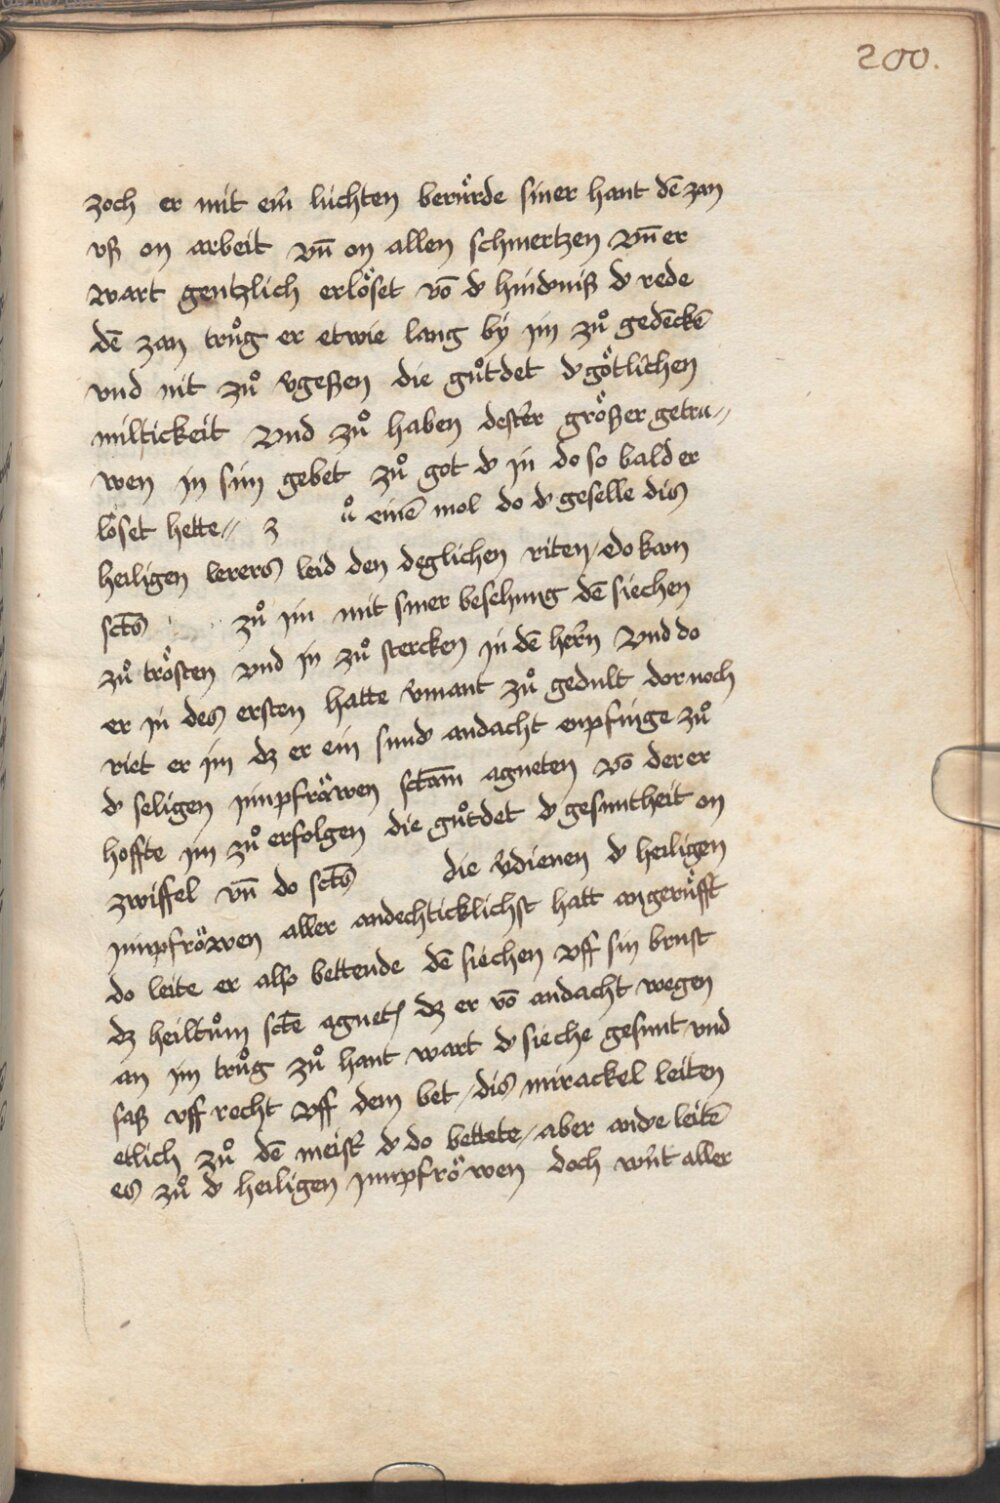 200.
zoch er mit eim̄ lùchten berürde siner hant dē zan
vß on arbeit vn̄ on allen schmertzen vn̄ er
wart gentzlich erlöset vō d' hindniß d' rede
dē zan trůg er etwie lang bÿ jm zů gedēckē
vnd nit zů v'geßen die gůtdet d' götlichen
miltickeit vnd zů haben dester größer getru〃
wen jn sim gebet zů got d' jn do so bald er
löset hette〃 z ů einē mol do d' geselle dis
heiligen lerers leid den deglichen riten / do kam
sctōs zů jm mit siner besehung dē siechen
zů trösten vnd jn zů stercken jn dē hern̄ vnd do
er jn des ersten hatte v'mant zů gedult dor noch
riet er jm dz er ein sund' andacht enpfinge zů
d' seligen junpfröwen sctām agneten vō der er
hoffte jm zů erfolgen die gůtdet d' gesuntheit on
zwiffel vn̄ do sctōs die v'dienen d' heiligen
junpfröwen aller andechticklichst hatt angerùfft
do leite er also bettende dē siechen vff sin brust
dz heiltům sctē agnet' dz er vō andacht wegen
an jm trůg zů hant wart d' sieche gesunt vnd
saß vff recht vff dem bet / dis mirackel leiten
etlich zů dē meist' d' do bettete / aber and'e leitē
es zů d' heiligen junpfröwen doch wurt aller